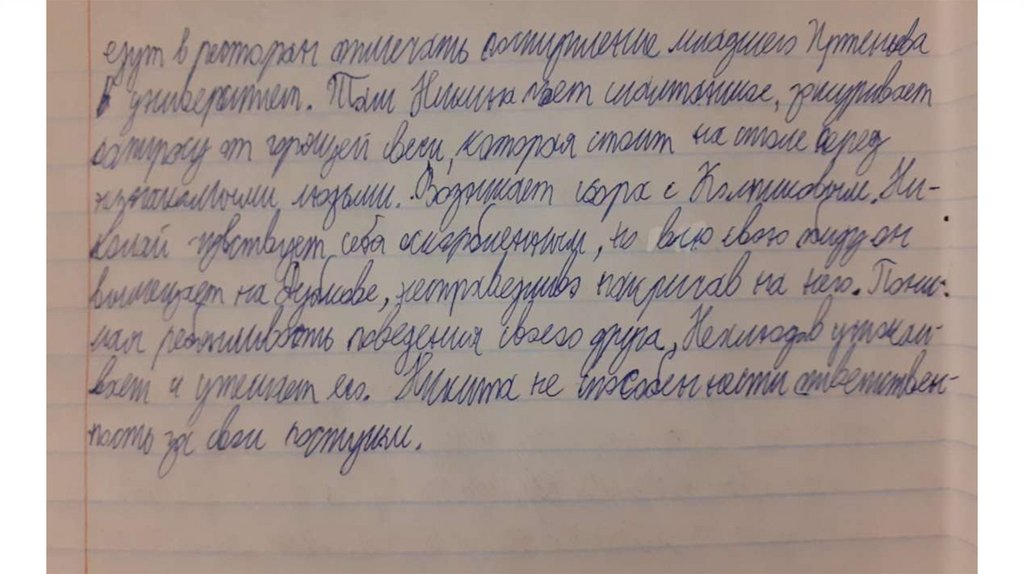 едут в ресторан отмечать поступление младшего Иртеньева
в университет. Там Никита пьет шампанское, закуривает
папиросу от горящей свечи, которая стоит на столе перед
незнакомыми людьми. Возникает ссора с Колпиковым. Ни-
колай чувствует себя оскорбленным, но всю свою обиду он
вымещает на Дубкове, несправедливо накричав на него. Пони-
мая ребячливость поведения своего друга, Нехлюдов успокаи-
вает и утешает его. Никита не способен нести ответствен-
ность за свои поступки.